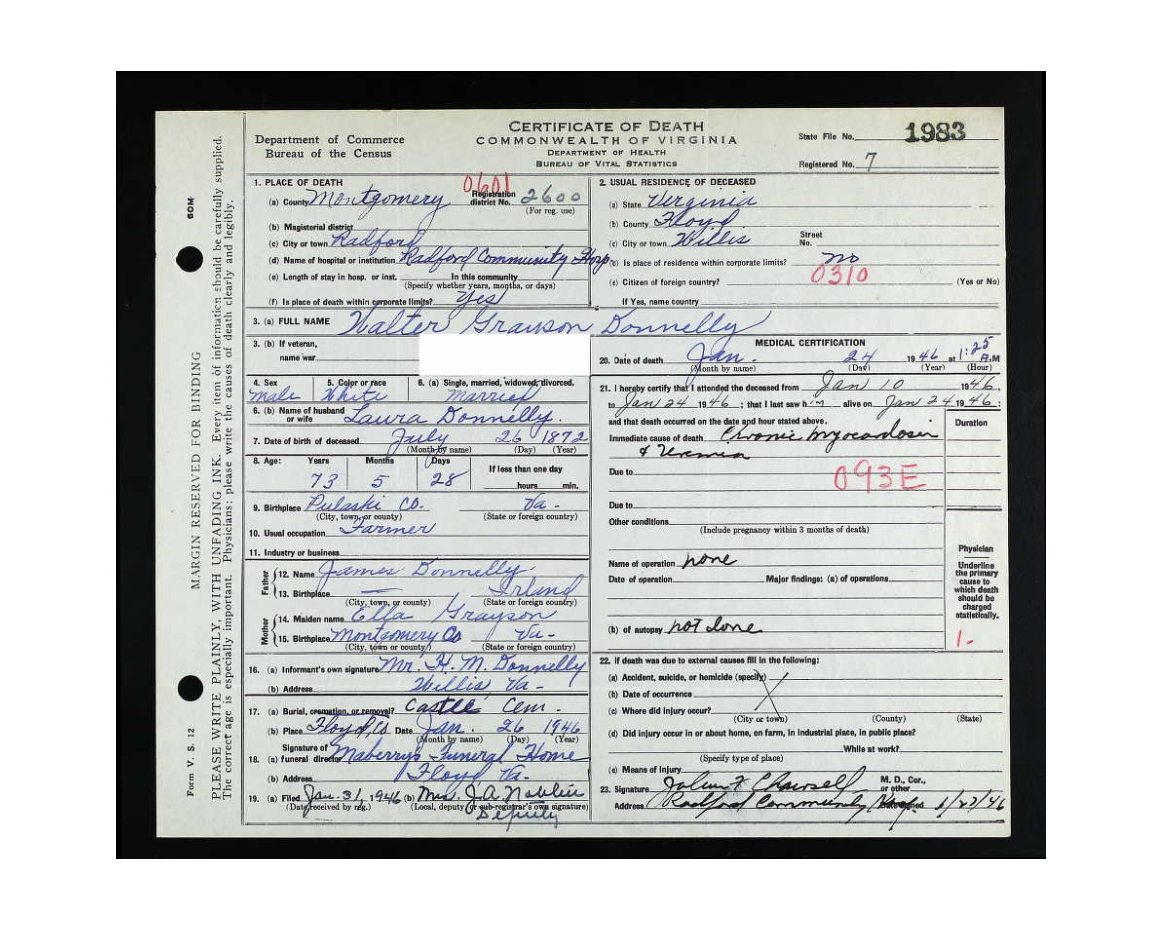 CERTIFICATE OF DEATH
COMMONWEALTH OF VIRGINIA
DEPARTMENT OF HEALTH
BUREAU OF VITAL STATISTICS
Department of Commerce
Bureau of the Census
State File No. 1983
Registered No. 7
MARGIN RESERVED FOR BINDING
PLEASE WRITE PLAINLY, WITH UNFADING INK. Every item of information should be carefully supplied.
The correct age is especially important. Physicians: please write the causes of death clearly and legibly.
Form V. S. 12
60M
1. PLACE OF DEATH
(a) County Montgomery 0601 Registration district No. 2600
(For reg. use)
(b) Magisterial district
(c) City or town Radford
(d) Name of hospital or institution Radford Community Hosp
(e) Length of stay in hosp. or inst. In this community
(Specify whether years, months, or days)
(f) Is place of death within corporate limits? Yes
2. USUAL RESIDENCE OF DECEASED
(a) State Virginia
(b) County Floyd
(c) City or town Willis Street No.
Is place of residence within corporate limits? no
0310
(e) Citizen of foreign country? (Yes or No)
If Yes, name country
3. (a) FULL NAME Walter Grayson Donnelly
3. (b) If veteran,
name war
4. Sex 5. Color or race 6. (a) Single, married, widowed, divorced.
male White Married
6. (b) Name of husband or wife Laura Donnelly.
7. Date of birth of deceased July 26 1872
(Month by name) (Day) (Year)
8. Age: Years Months Days If less than one day
73 5 28 hours min.
9. Birthplace Pulaski Co. Va -
(City, town, or county) (State or foreign country)
10. Usual occupation Farmer
11. Industry or business
Father
12. Name James Donnelly
13. Birthplace — Irland
(City, town, or county) (State or foreign country)
Mother
14. Maiden name Ella Grayson
15. Birthplace Montgomery Co Va -
(City, town or county) (State or foreign country)
16. (a) Informant's own signature Mr. H. M. Donnelly
(b) Address Willis, Va -
17. (a) Burial, cremation, or removal? Castle Cem.
(b) Place Floyd, Co Date Jan. 26 1946
(Month by name) (Day) (Year)
18. (a) Signature of funeral director Maberry's Funeral Home
(b) Address Floyd Va.
19. (a) Filed Jan. 31, 1946 (b) Mrs. J. A.
(Date received by reg.) (Local, deputy or sub-registrar's own signature)
Deputy
MEDICAL CERTIFICATION
20. Date of death Jan. 24 1946 at 1:25 A.M
(Month by name) (Day) (Year) (Hour)
21. I hereby certify that I attended the deceased from Jan 10 1946
to Jan 24 1946; that I last saw him alive on Jan 24 1946;
and that death occurred on the date and hour stated above. Duration
Immediate cause of death Chronic
& Uremia
Due to 093E
Due to
Other conditions
(Include pregnancy within 3 months of death)
Name of operation none
Date of operation Major findings: (a) of operations
(b) of autopsy not done
Physician
Underline the primary cause to which death should be charged statistically.
1-
22. If death was due to external causes fill in the following:
(a) Accident, suicide, or homicide (specify)
(b) Date of occurrence
(c) Where did injury occur?
(City or town) (County) (State)
(d) Did injury occur in or about home, on farm, in industrial place, in public place?
While at work?
(Specify type of place)
(e) Means of injury
23. Signature M. D., Cor., or other
Address Radford Community Hosp Date signed